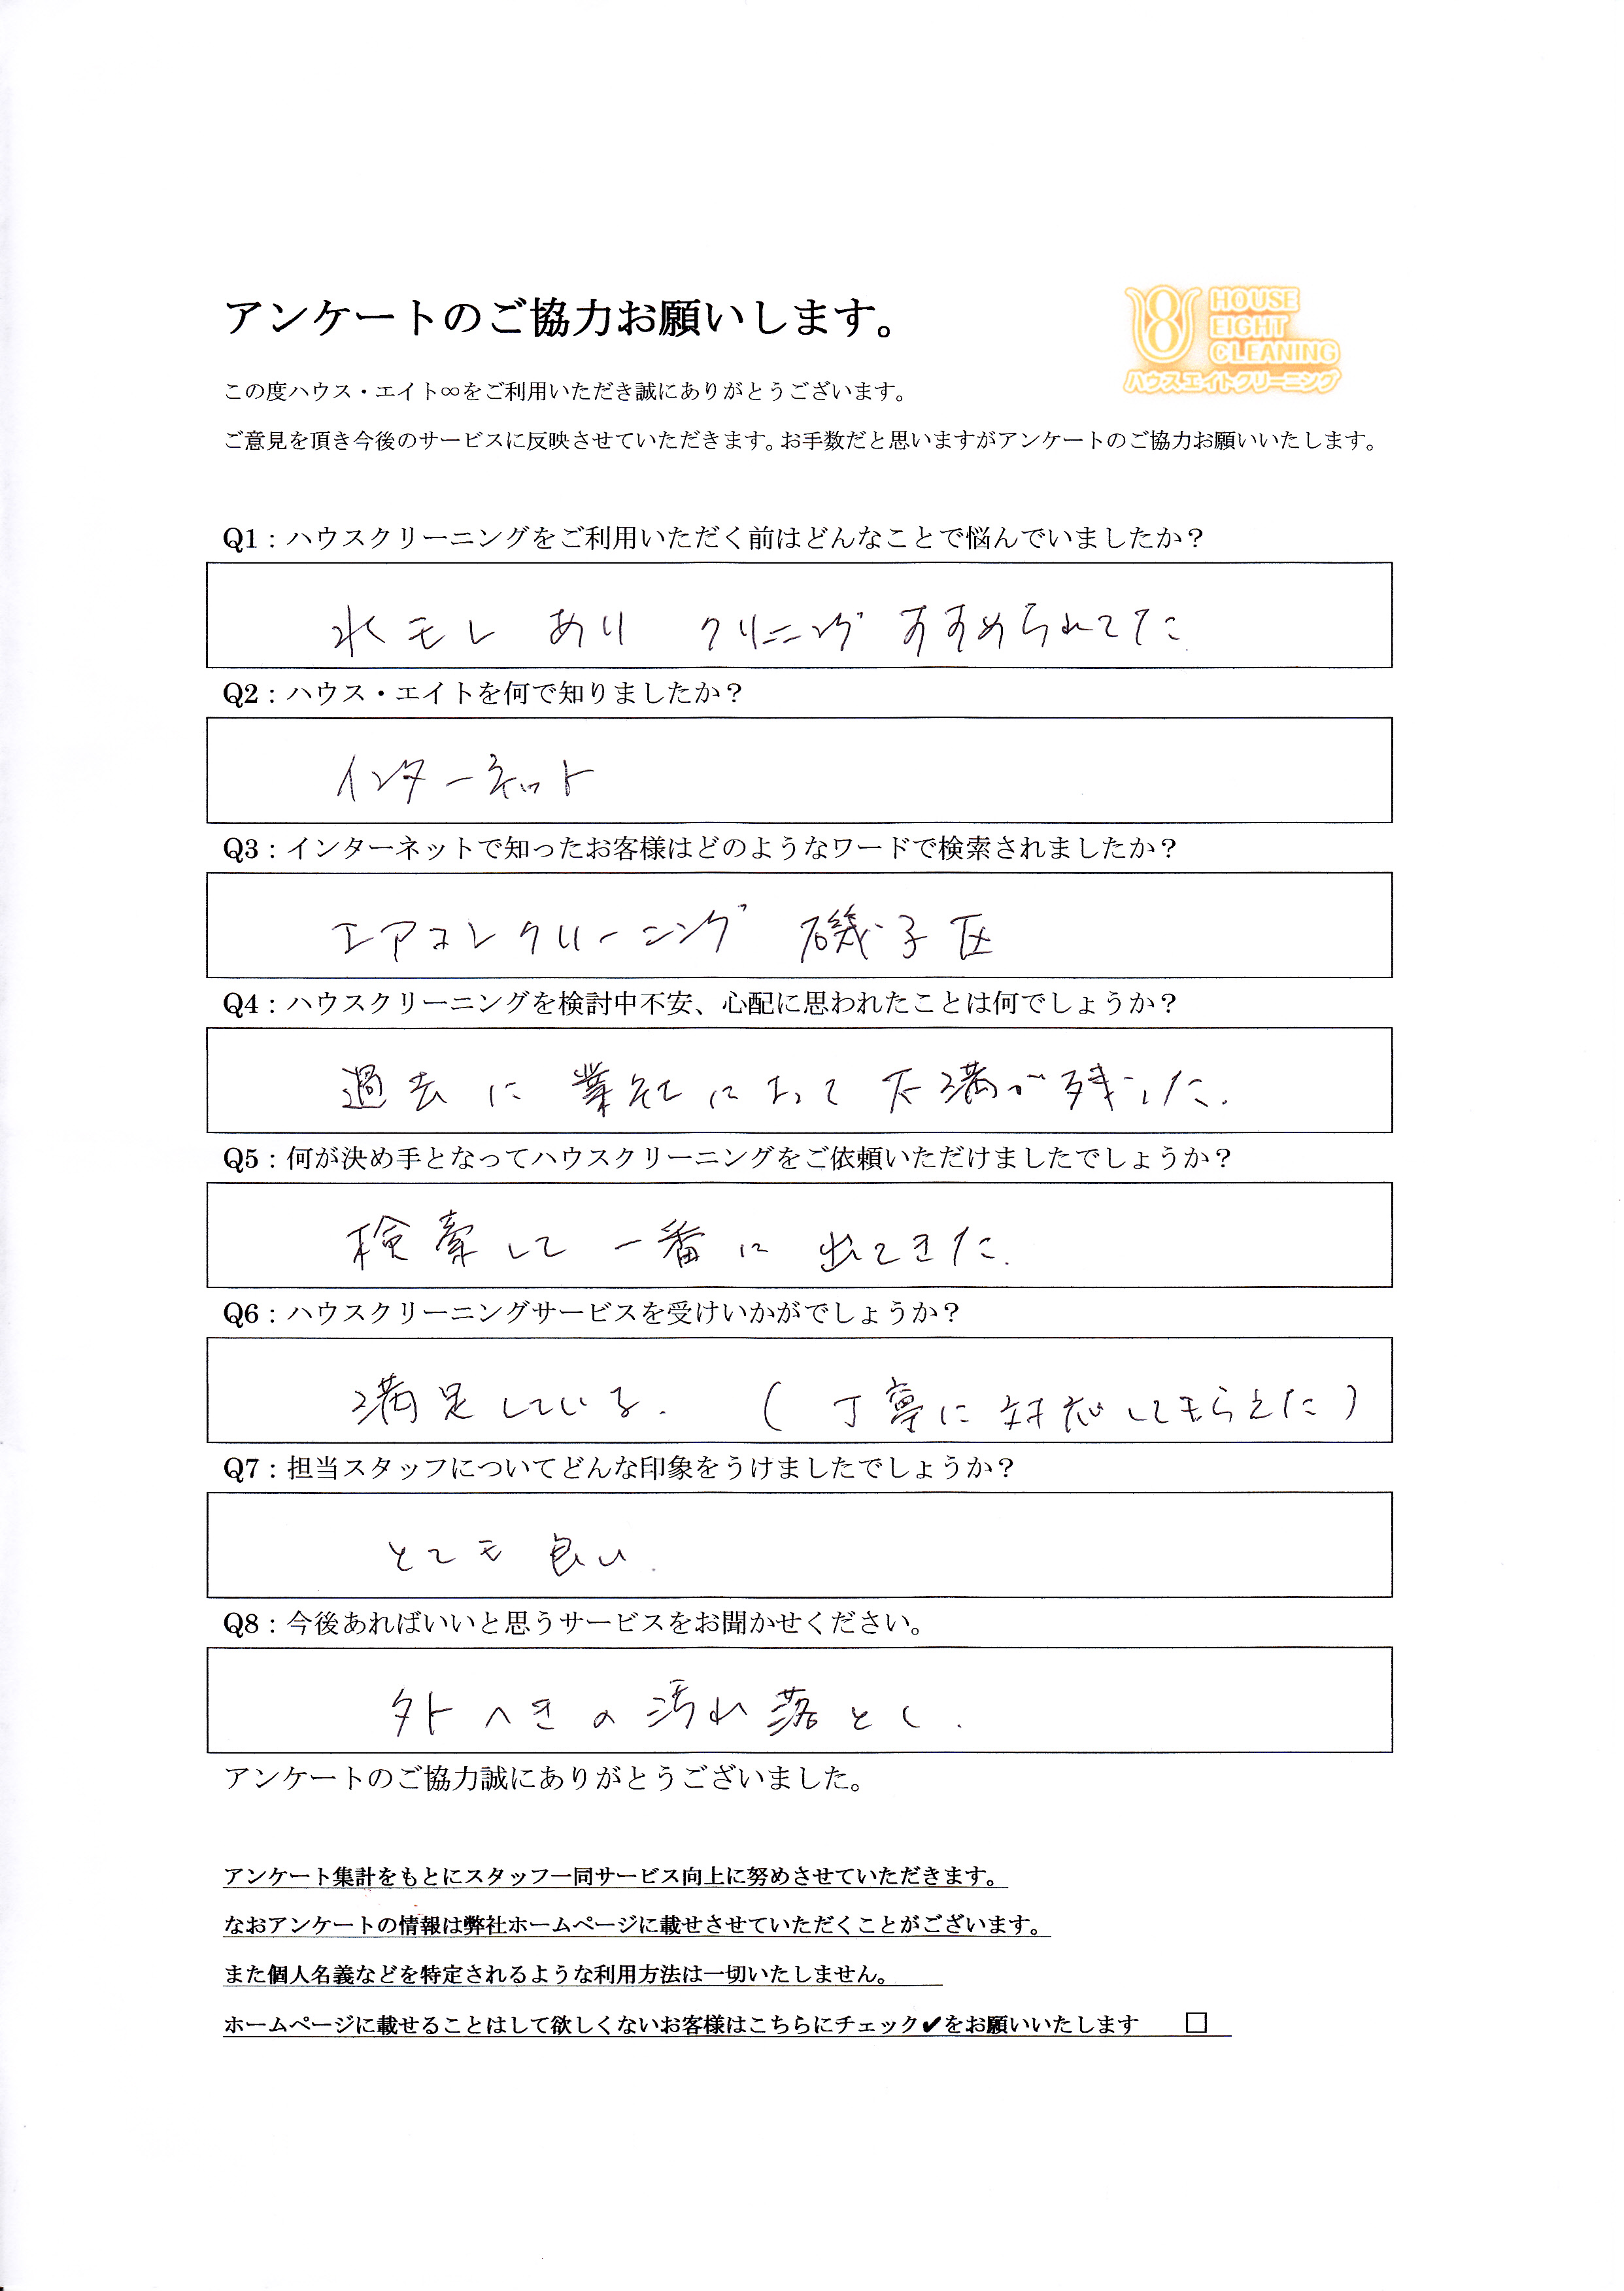 アンケートのご協力お願いします。
HOUSE
EIGHT
CLEANING
ハウスエイトクリーニング
この度ハウス・エイト∞をご利用いただき誠にありがとうございます。
ご意見を頂き今後のサービスに反映させていただきます。お手数だと思いますがアンケートのご協力お願いいたします。
Q1：ハウスクリーニングをご利用いただく前はどんなことで悩んでいましたか？
水モレ あり クリニング すすめられてた
Q2：ハウス・エイトを何で知りましたか？
インターネット
Q3：インターネットで知ったお客様はどのようなワードで検索されましたか？
エアコンクリーニング 磯子区
Q4：ハウスクリーニングを検討中不安、心配に思われたことは何でしょうか？
過去に 業社によって 不満が残った.
Q5：何が決め手となってハウスクリーニングをご依頼いただけましたでしょうか？
検索して 一番に 出てきた.
Q6：ハウスクリーニングサービスを受けいかがでしょうか？
満足している. (丁寧に対応してもらえた)
Q7：担当スタッフについてどんな印象をうけましたでしょうか？
とても 良い.
Q8：今後あればいいと思うサービスをお聞かせください。
外へきの汚れ落とし.
アンケートのご協力誠にありがとうございました。
アンケート集計をもとにスタッフ一同サービス向上に努めさせていただきます。
なおアンケートの情報は弊社ホームページに載せさせていただくことがございます。
また個人名義などを特定されるような利用方法は一切いたしません。
ホームページに載せることはして欲しくないお客様はこちらにチェック✔をお願いいたします □